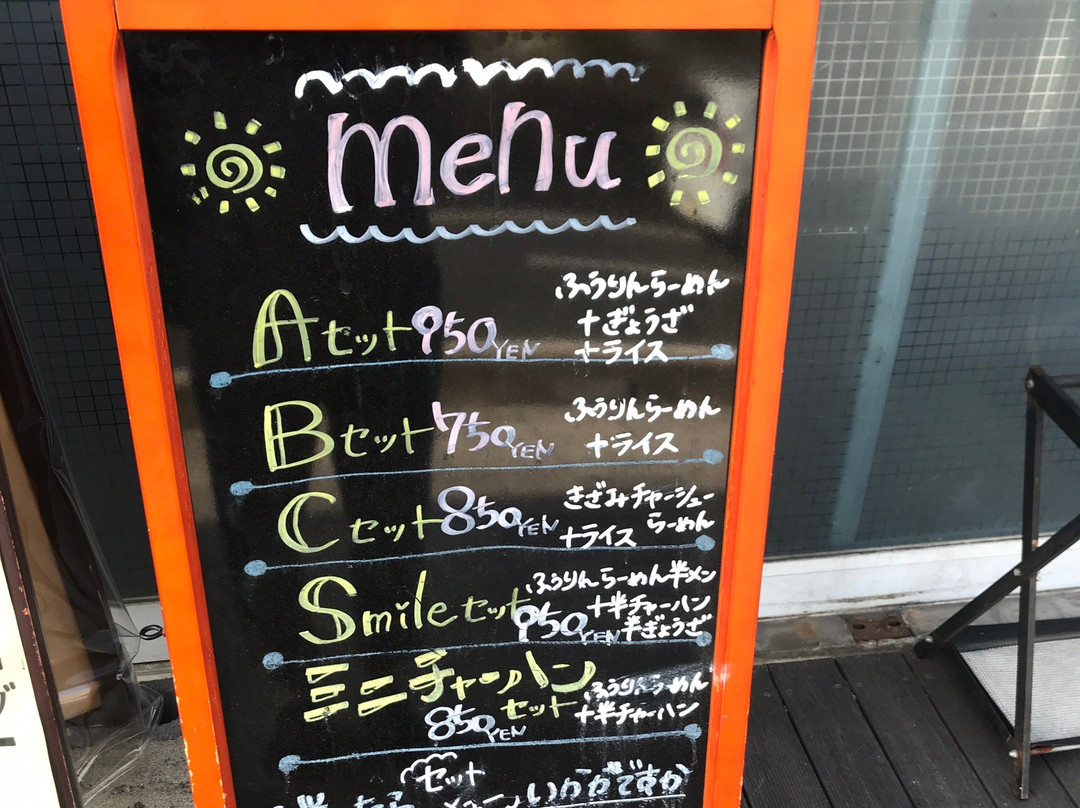 menu
Aセット950YEN
ふうりんらーめん
+ぎょうざ
+ライス
Bセット750YEN
ふうりんらーめん
+ライス
Cセット850YEN
きざみチャーシュー
らーめん
+ライス
Smileセット
950YEN
ふうりんらーめん半メン
+半チャーハン
半ぎょうざ
ミニチャーハン
セット
850YEN
ふうりんらーめん
+半チャーハン
セット
いかがですか